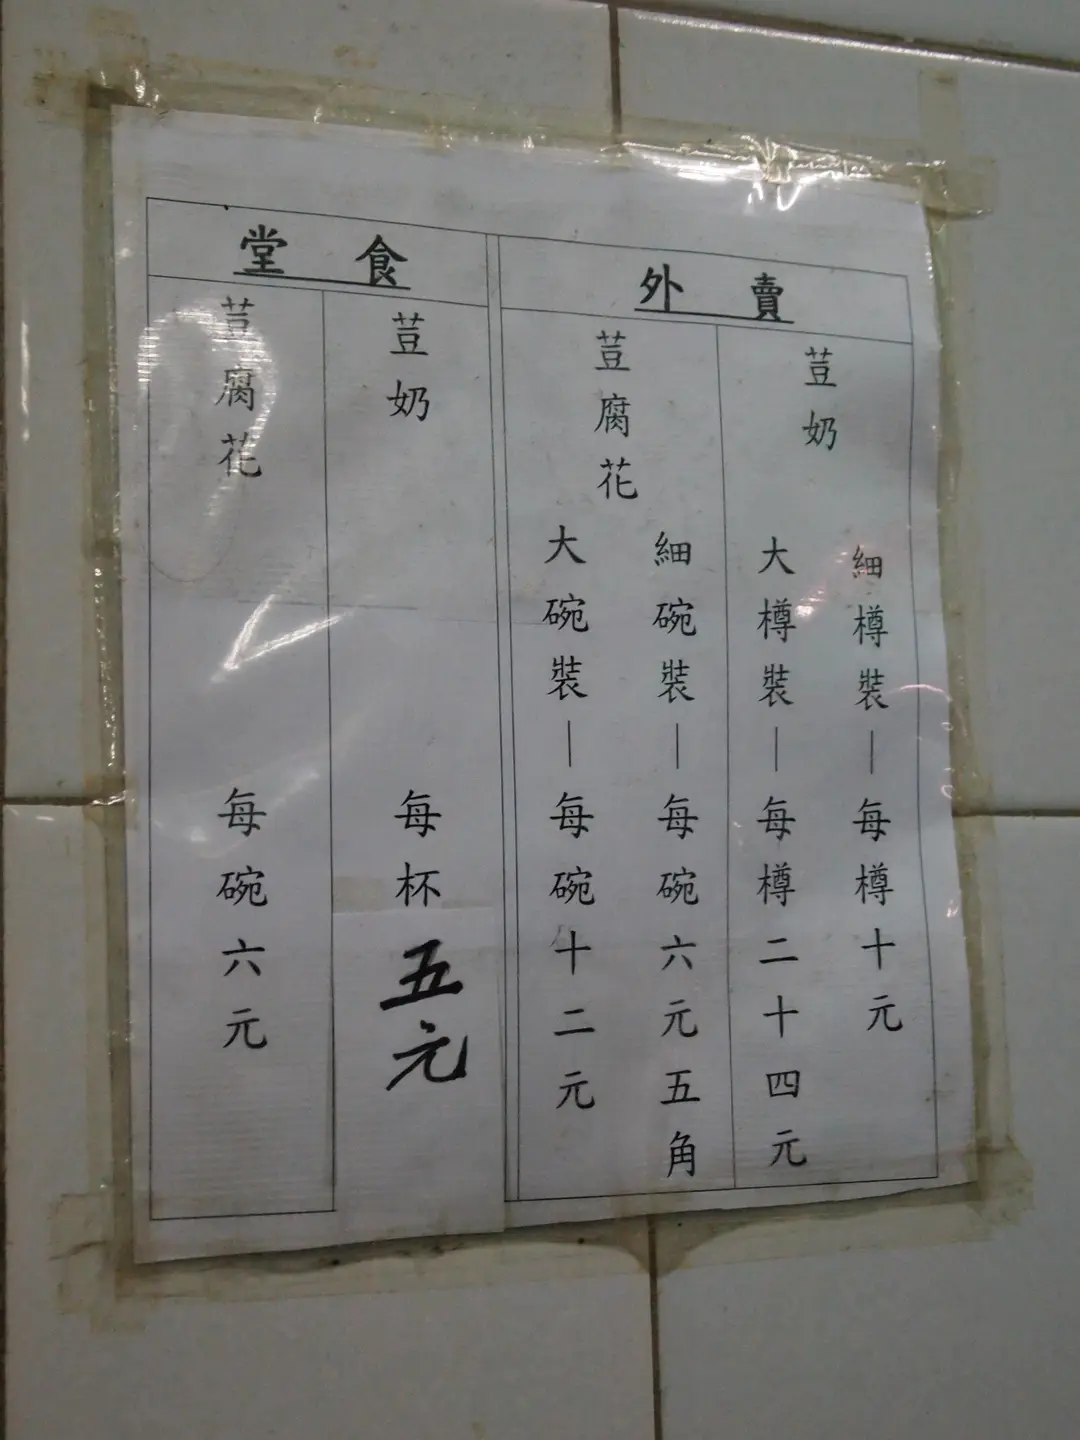 堂食
荳腐花
每碗六元
荳奶
每杯五元
外賣
荳腐花
大碗裝—每碗十二元
細碗裝—每碗六元五角
荳奶
大樽裝—每樽二十四元
細樽裝—每樽十元